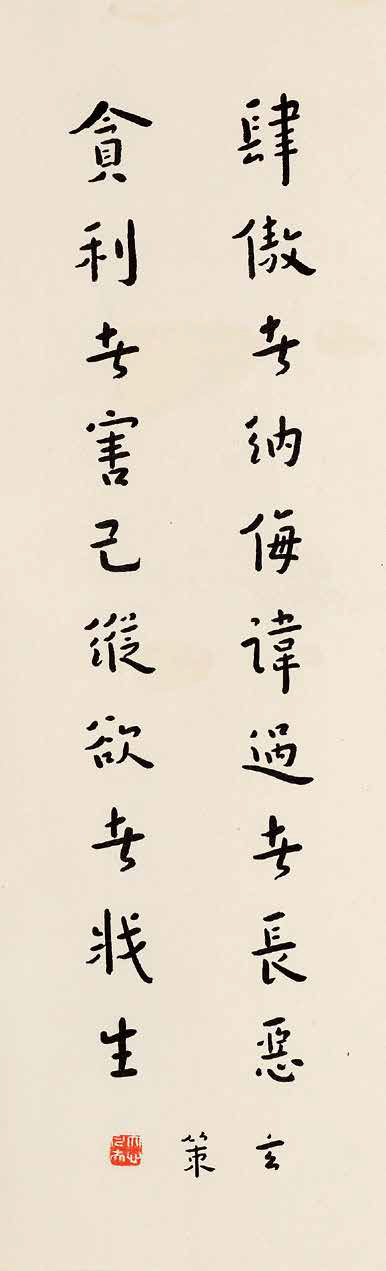 肆傲者納侮諱過者長惡
貪利者害己縱欲者戕生
玄
策